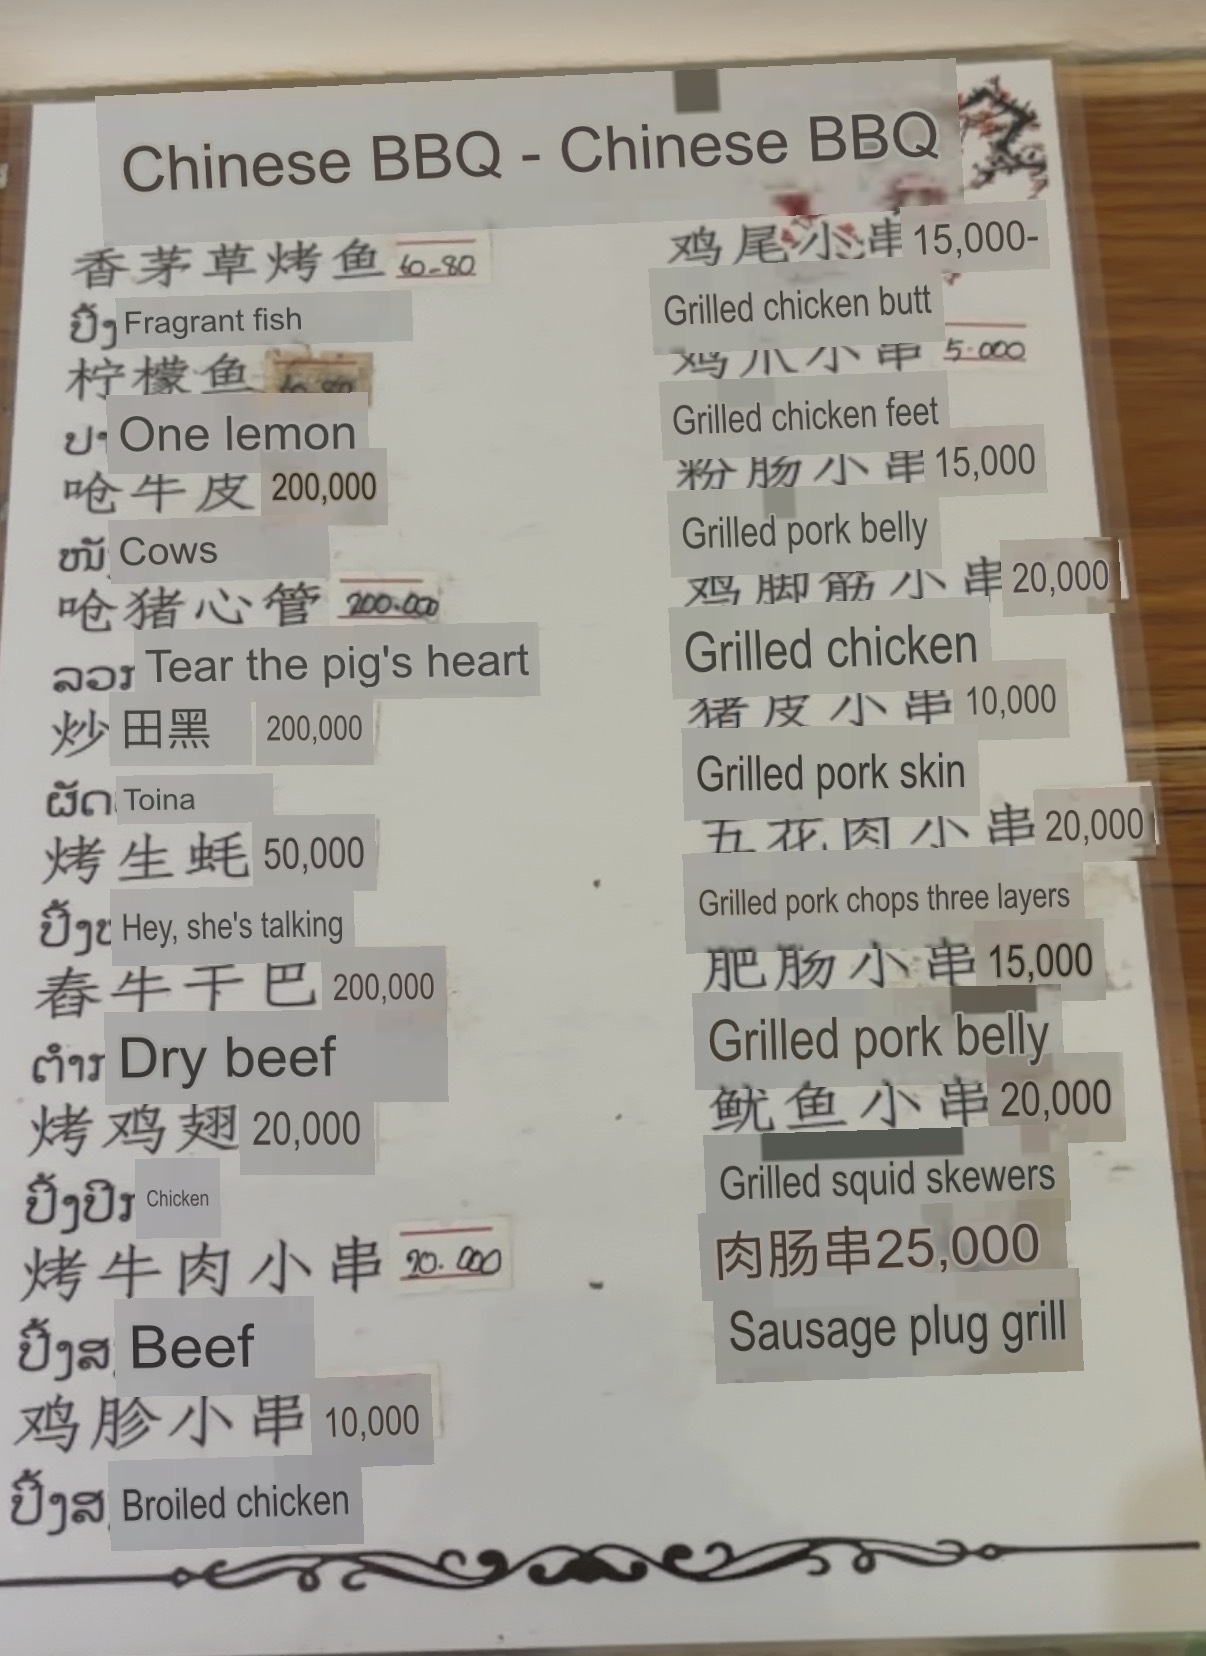 Chinese BBQ - Chinese BBQ
香茅草烤鱼 60-80
ປີ້ງ Fragrant fish
柠檬鱼
One lemon
呛牛皮 200,000
Cows
呛猪心管 200.000
ລວກ Tear the pig's heart
炒田黑 200,000
ຜັດ Toina
烤生蚝 50,000
ປີ້ງ Hey, she's talking
舂牛干巴 200,000
ຕຳ Dry beef
烤鸡翅 20,000
ປີ້ງປີກ Chicken
烤牛肉小串 20.000
ປີ້ງສ Beef
鸡胗小串 10,000
ປີ້ງສ Broiled chicken
鸡尾小串 15,000-
Grilled chicken butt
鸡爪小串 5.000
Grilled chicken feet
粉肠小串 15,000
Grilled pork belly
鸡脚筋小串 20,000
Grilled chicken
猪皮小串 10,000
Grilled pork skin
五花肉小串 20,000
Grilled pork chops three layers
肥肠小串 15,000
Grilled pork belly
鱿鱼小串 20,000
Grilled squid skewers
肉肠串25,000
Sausage plug grill